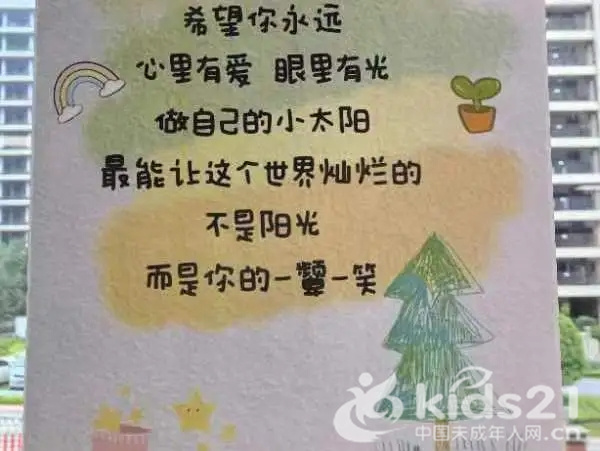 希望你永远
心里有爱 眼里有光
做自己的小太阳
最能让这个世界灿烂的
不是阳光
而是你的一颦一笑
kids21
中国未成年人网.cn